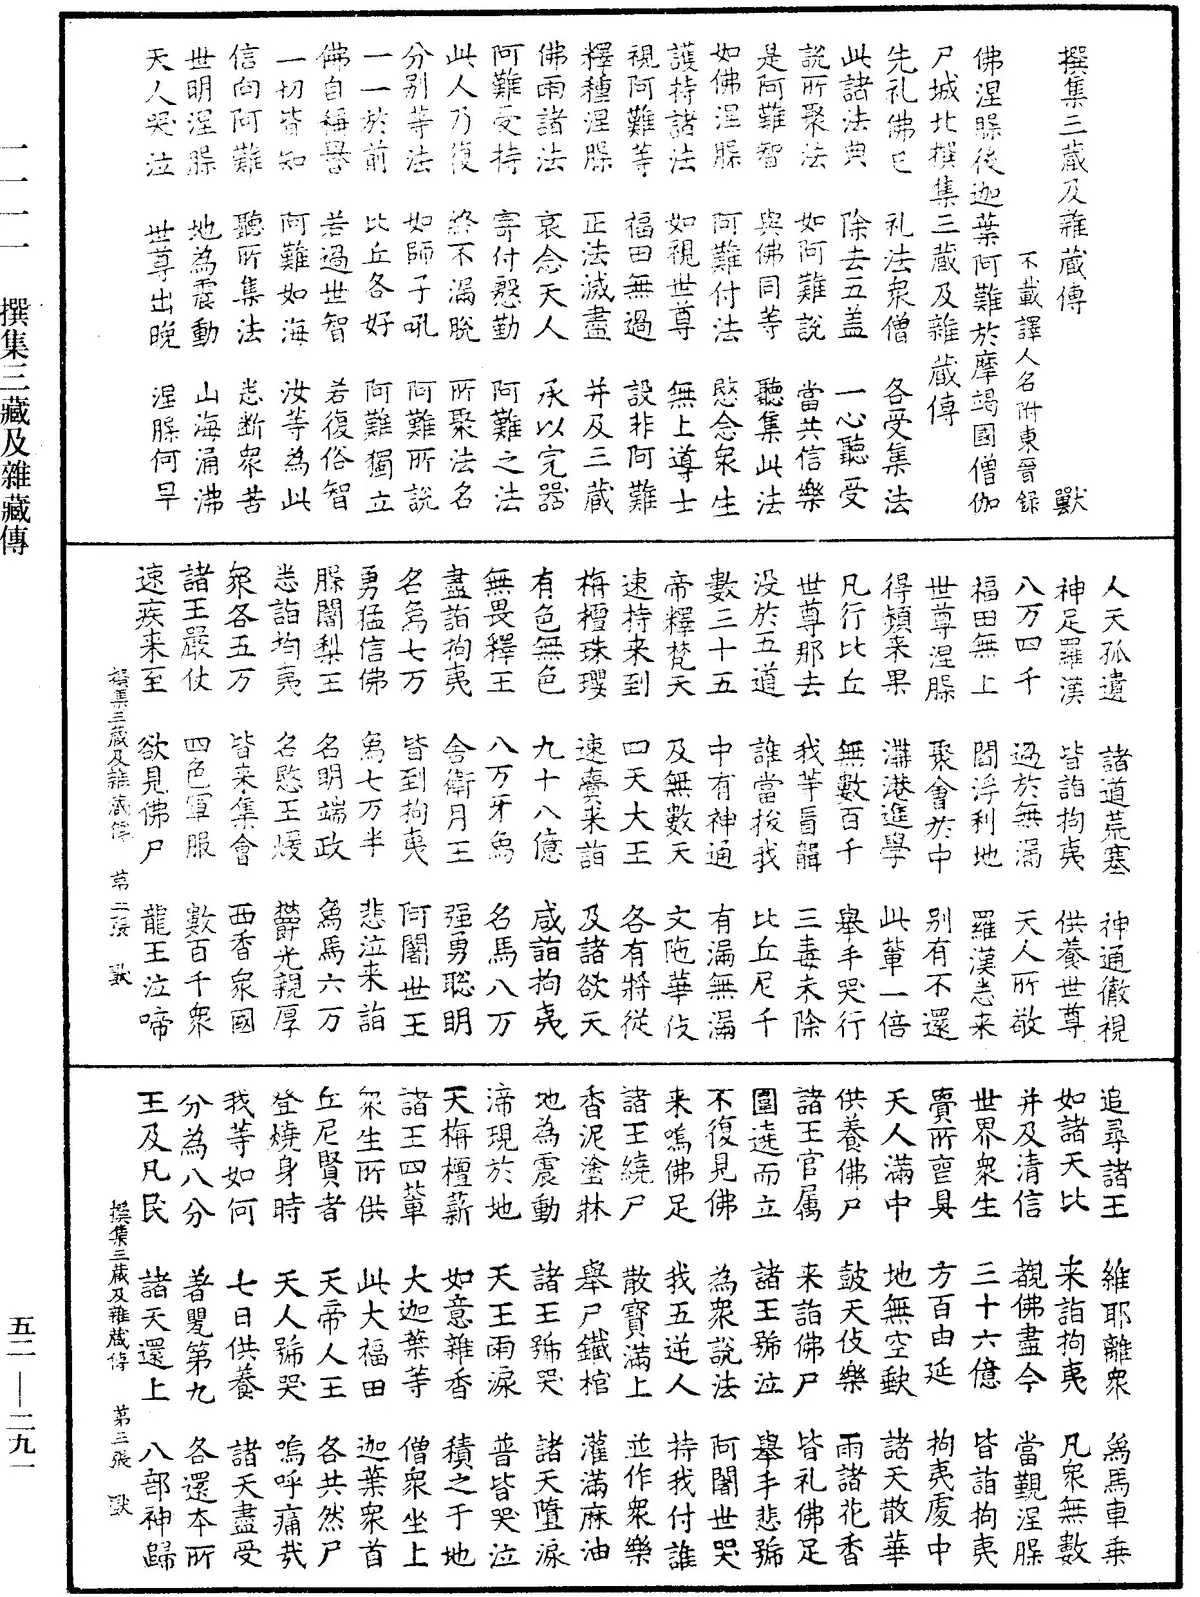 撰集三藏及雜藏傳　獸
不載譯人名附東晉錄
佛涅槃後迦葉阿難於摩竭國僧伽
尸城北撰集三藏及雜藏傳
先礼佛已　礼法衆僧　各受集法
此諸法典　除去五盖　一心聽受
說所聚法　如阿難說　當共信樂
是阿難智　與佛同等　聽集此法
如佛涅槃　阿難付法　愍念衆生
護持諸法　如視世尊　無上導士
視阿難等　福田無過　設非阿難
釋種涅槃　正法滅盡　并及三藏
佛雨諸法　哀念天人　承以完器
阿難受持　寄付慇勤　阿難之法
此人乃復　終不漏脫　所聚法名
分別等法　如師子吼　阿難所說
一一於前　比丘各好　阿難獨立
佛自稱譽　若過世智　若復俗智
一切皆知　阿難如海　汝等為此
信向阿難　聽所集法　悉斷衆苦
世明涅槃　地為震動　山海涌沸
天人哭泣　世尊出晚　涅槃何早
人天孤遺　諸道荒塞　神通徹視
神足羅漢　皆詣拘夷　供養世尊
八万四千　過於無漏　天人所敬
福田無上　閻浮利地　羅漢悉来
世尊涅槃　聚會於中　別有不還
得頻来果　溝港進學　此輩一倍
凡行比丘　無數百千　舉手哭行
世尊那去　我等盲聾　三毒未除
没於五道　誰當拔我　比丘尼千
數三十五　中有神通　有漏無漏
帝釋梵天　及無數天　文陁華伎
速持来到　四天大王　各有將從
栴檀珠璎　速賫来詣　及諸欲天
有色無色　九十八億　咸詣拘夷
無畏釋王　八万牙象　名馬八万
盡詣拘夷　舍衛月王　强勇聡明
名象七万　皆到拘夷　阿闍世王
勇猛信佛　象七万半　悲泣来詣
脲闍梨王　名明端政　象馬六万
悉詣拘夷　名愍王煖　欝光親厚
衆各五万　皆来集會　西香衆國
諸王嚴仗　四色軍服　數百千衆
速疾来至　欲見佛尸　龍王泣啼
撰集三藏及雜藏傳　第二張　獸
追尋諸王　維耶離衆　象馬車乗
如諸天比　来詣拘夷　凡衆無數
并及清信　覩佛盡今　當覲涅槃
世界衆生　三十六億　皆詣拘夷
賣所亶具　方百由延　拘夷處中
天人滿中　地無空缺　諸天散華
供養佛尸　鼓天伎樂　雨諸花香
諸王官属　来詣佛尸　皆礼佛足
圍遶而立　諸王號泣　舉手悲號
不復見佛　為衆說法　阿闍世哭
来嗚佛足　我五逆人　持我付誰
諸王繞尸　散寶滿上　並作衆樂
香泥塗牀　舉尸鐵棺　灌滿麻油
地為震動　諸王號哭　諸天墮淚
渧現於地　天王雨淚　普皆哭泣
天栴檀薪　如意雜香　積之于地
諸王四輩　大迦葉等　僧衆坐上
衆生所供　此大福田　迦葉衆首
丘尼賢者　天帝人王　各共然尸
登燒身時　天人號哭　嗚呼痛哉
我等如何　七日供養　諸天盡受
分為八分　著甖第九　各還本所
王及凡民　諸天還上　八部神歸
撰集三藏及雜藏傳　第三張　獸
撰集三藏及雜藏傳
五二——二九一